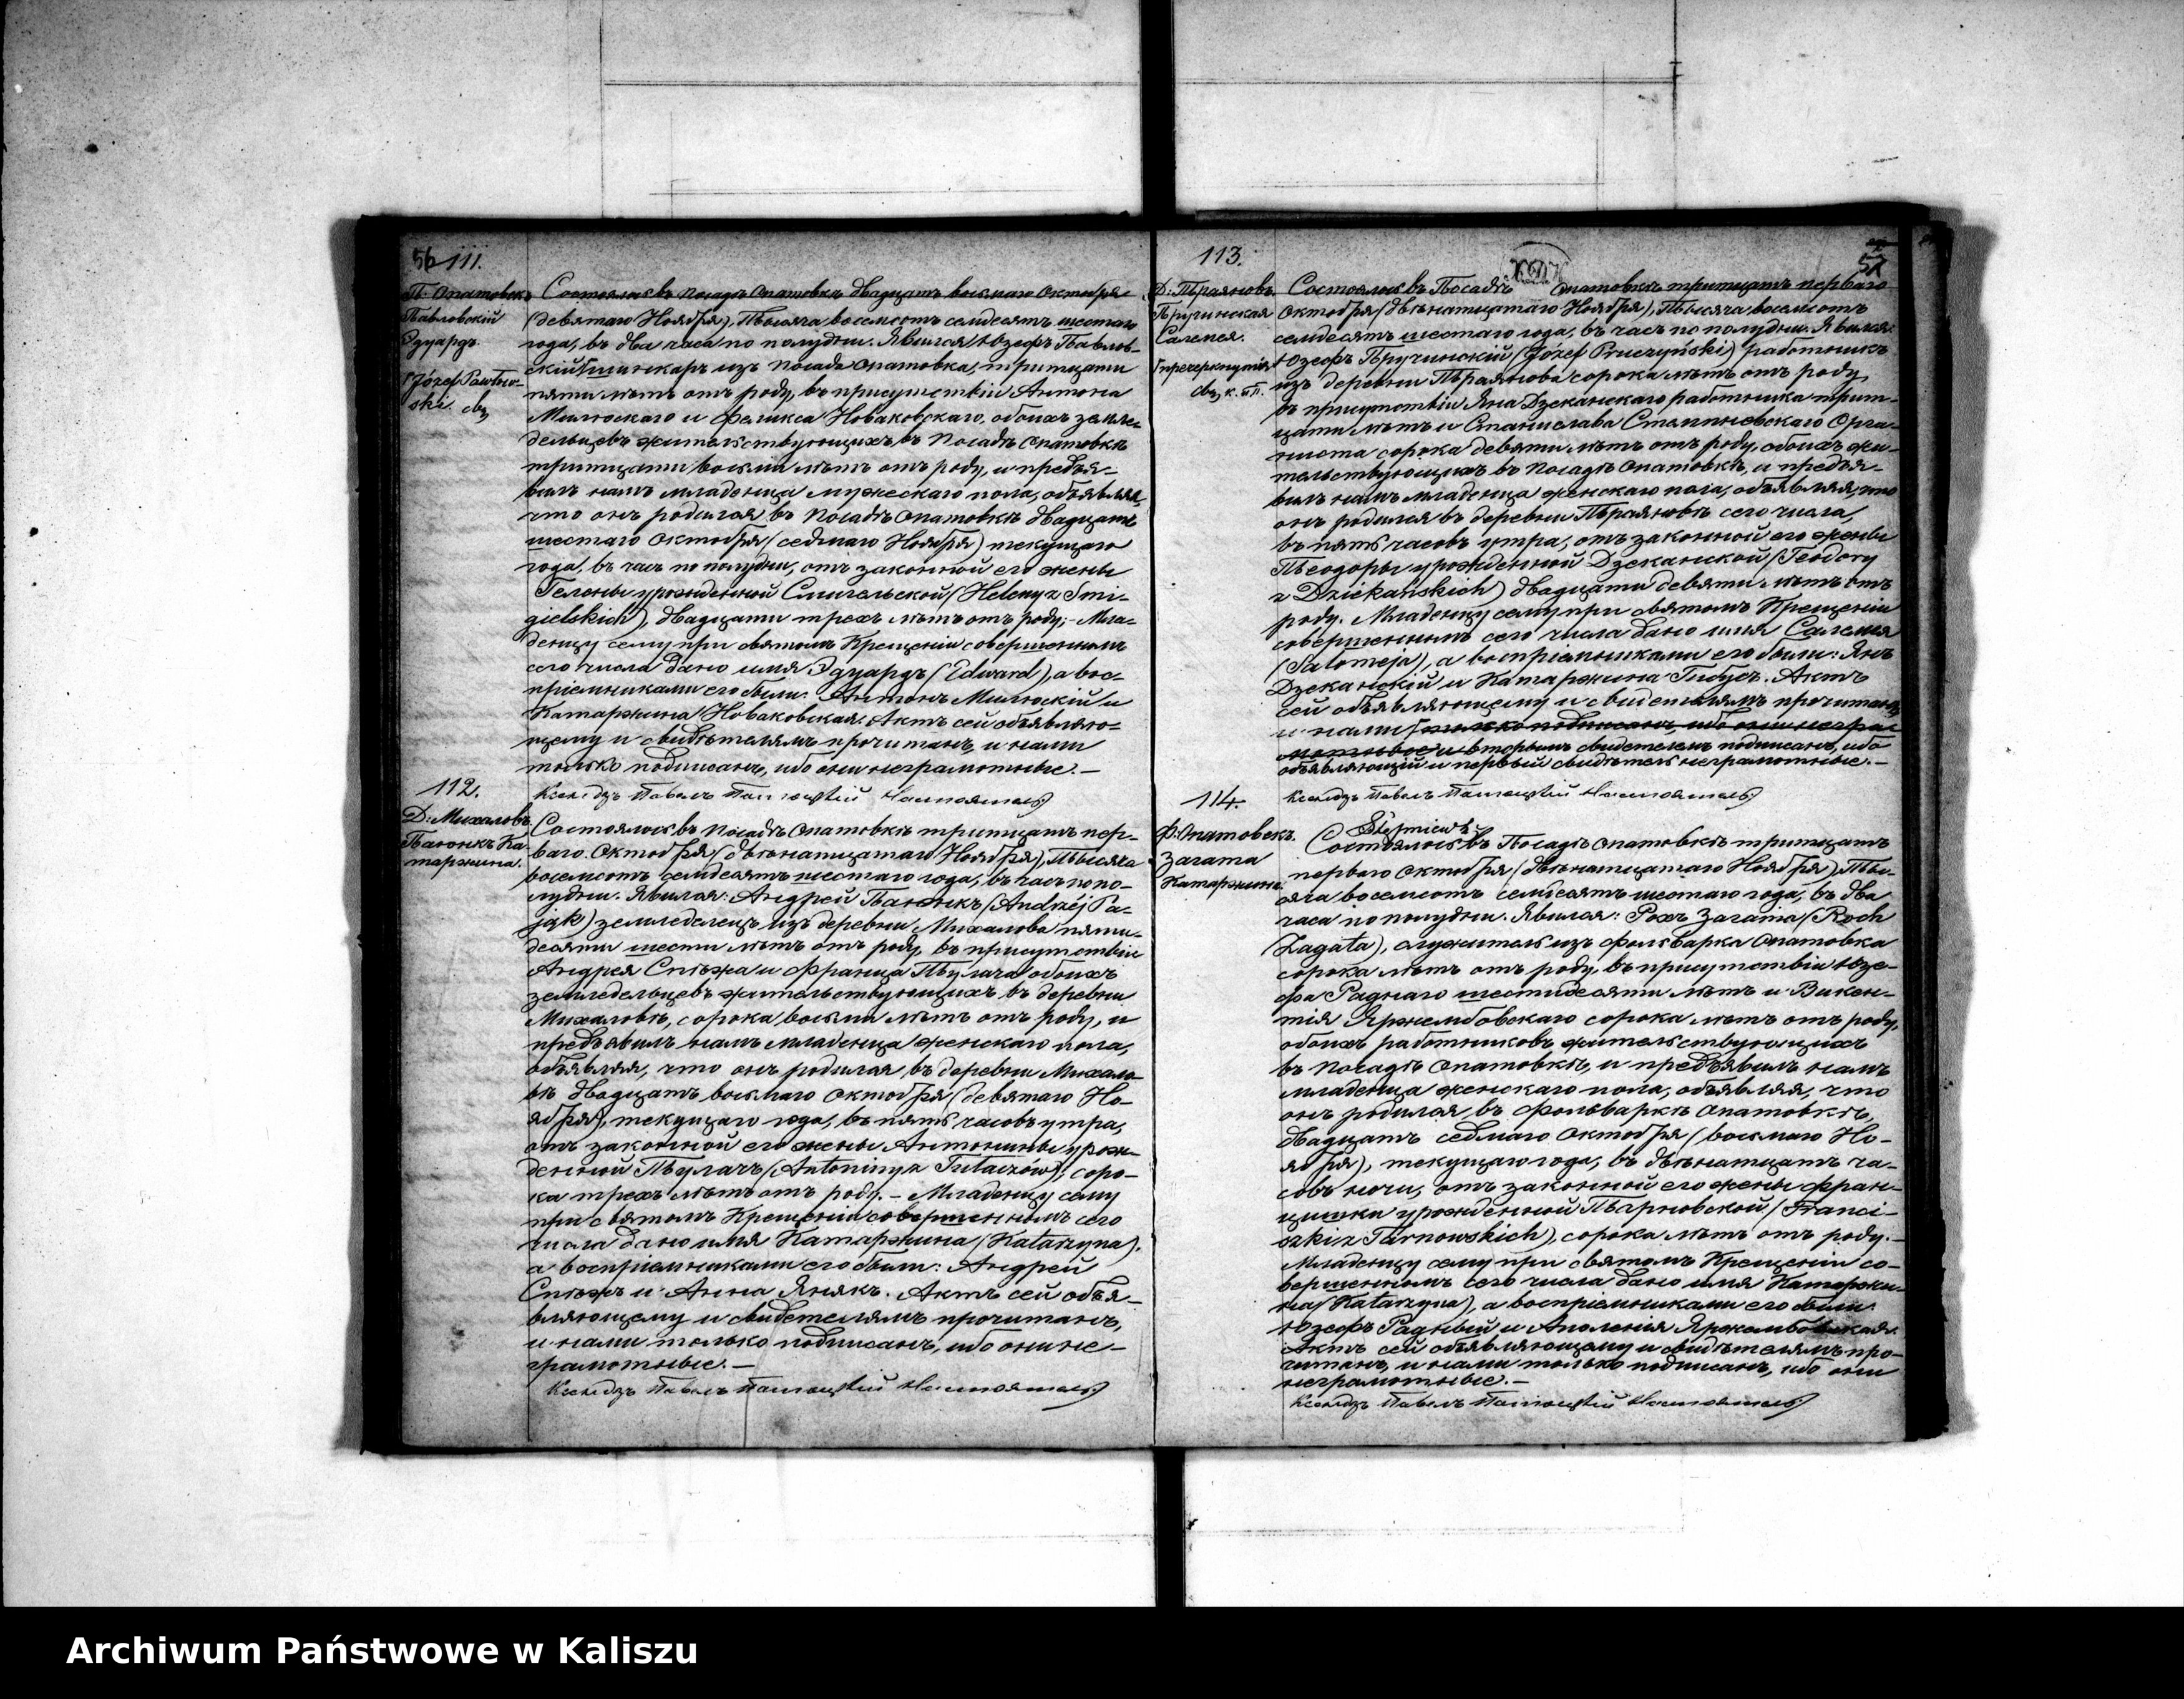 56 111.
П. Опатовек
Павловскій
Эдуардъ.
Józef Pawłow-
ski. съ
Состоялось въ Посадѣ Опатовкѣ двадцать восьмаго Октября
(девятаго Ноября), Тысяча восемсотъ семдесятъ шестаго
года, въ два часа по полудни. Явился Юзефъ Павлов-
скій шинкаръ изъ посада Опатовка, тритцати
пяти лѣтъ отъ роду, въ присутствіи Антона
Милюскаго и Феликса Новаковскаго, обоихъ земле-
дельцевъ жительствующихъ въ Посадѣ Опатовкѣ
тритцати восьми лѣтъ отъ роду, и предъя-
вилъ намъ младенца мужескаго пола, объявляя,
что онъ родился въ Посадѣ Опатовкѣ двадцать
шестаго Октября (седмаго Ноября) текущаго
года, въ часъ по полудни, отъ законной его жены
Гелены урожденной Смигельской (Heleny z Śmi-
gielskich), двадцати трехъ лѣтъ отъ роду; - Мла-
денцу сему при святомъ Крещеніи совершенномъ
сего числа дано имя Эдуардъ (Edward), а вос-
пріемниками его были: Антонъ Милюскій и
Катаржина Новаковская. Актъ сей объявляю-
щему и свидѣтелямъ прочитанъ, и нами
только подписанъ, ибо они неграмотные. -
Ксендзъ Павелъ Настоятель
112.
Д: Михаловъ
Паюнкъ Ка-
таржина.
Состоялось въ Посадѣ Опатовкѣ тритцать пер-
ваго Октября (двѣнатцатаго Ноября), Тысяча
восемсотъ семдесятъ шестаго года, въ часъ по по-
лудни. Явился: Андрей Паюнкъ (Andrzéj Pa-
jąk) земледелецъ изъ деревни Михалова пяти-
десяти шести лѣтъ отъ роду, въ присутствіи
Андрея Спѣжа и Франца Тулача обоихъ
земледельцевъ жительствующихъ въ деревни
Михаловѣ, сорока восьми лѣтъ отъ роду, и
предъявилъ намъ младенца женскаго пола,
объявляя, что онъ родился въ деревни Михало-
вѣ двадцать восьмаго Октября (девятаго Но-
ября), текущаго года, въ пять часовъ утра,
отъ законной его жены Антонины урож-
денной Тулачъ (Antoniny z Tułaczów), соро-
ка трехъ лѣтъ отъ роду. - Младенцу сему
при святомъ Крещеніи совершенномъ сего
числа дано имя Катаржина (Katarzyna).
а воспріемниками его были: Андрей
Спѣжъ и Анна Янякъ. Актъ сей объя-
вляющему и свидетелямъ прочитанъ,
и нами только подписанъ, ибо они не-
грамотные. -
Ксендзъ Павелъ Настоятель
113.
57
Д: Тłраяновъ
Пручинская
Саломея.
перечеркнутія
съ, к. п.
Состоялось въ Посадѣ Опатовкѣ тритцать перваго
Октября (двѣнатцатаго Ноября), Тысяча восемсотъ
семдесятъ шестаго года, въ часъ по полудни. Явился:
Юзефъ Пручинскій (Józef Pruczyński) работникъ
изъ деревни Траянова сорока лѣтъ отъ роду,
въ присутствіи Яна Дзеканскаго работника трит-
цати лѣтъ и Станислава Стемпневскаго Орга-
ниста сорока девяти лѣтъ отъ роду, обоихъ жи-
тельствующихъ въ Посадѣ Опатовкѣ, и предъя-
вилъ намъ младенца женскаго пола, объявляя, что
онъ родился въ деревни Траяновѣ сего числа,
въ пять часовъ утра, отъ законной его жены
Теодоры урожденной Дзеканской (Teodory
z Dziekańskich) двадцати девяти лѣтъ отъ
роду. Младенцу сему при святомъ Крещеніи
совершенномъ сего числа дано имя Саломея
(Salomeja), а воспріемниками его были: Янъ
Дзеканскій и Катаржина Гибусъ. Актъ
сей объявляющему и свидетелямъ прочитанъ,
и нами только подписанъ, ибо они негра-
мотные и вторымъ свидетелемъ подписанъ, ибо
объявляющій и первый свидѣтель неграмотные. -
Ксендзъ Павелъ Настоятель
Stępniewski
114.
Ф: Опатовек.
Загата
Катаржина.
Состоялось въ Посадѣ Опатовкѣ тритцать
перваго Октября (двѣнатцатаго Ноября), Ты-
сяча восемсотъ семдесятъ шестаго года, въ два
часа по полудни. Явился: Рохъ Загата (Roch
Zagata), служитель изъ фольварка Опатовка
сорока лѣтъ отъ роду, въ присутствіи Юзе-
фа Раднаго шестидесяти лѣтъ и Викен-
тія Яржембовскаго сорока лѣтъ отъ роду,
обоихъ работниковъ жительствующихъ
въ Посадѣ Опатовкѣ, и предъявилъ намъ
младенца женскаго пола, объявляя, что
онъ родился въ фольваркѣ Опатовкѣ,
двадцать седмаго Октября (восьмаго Но-
ября), текущаго года, въ двѣнатцать ча-
совъ ночи, отъ законной его жены Фран-
цишки урожденной Тарновской (Franci-
szki z Tarnowskich), сорока лѣтъ отъ роду. -
Младенцу сему при святомъ Крещеніи со-
вершенномъ сего числа дано имя Катаржи-
на (Katarzyna), а воспріемниками его были:
Юзефъ Радный и Аполенія Яржембовская.
Актъ сей объявляющему и свидѣтелямъ про-
читанъ, и нами только подписанъ, ибо они
неграмотные. -
Ксендзъ Павелъ Настоятель
Archiwum Państwowe w Kaliszu